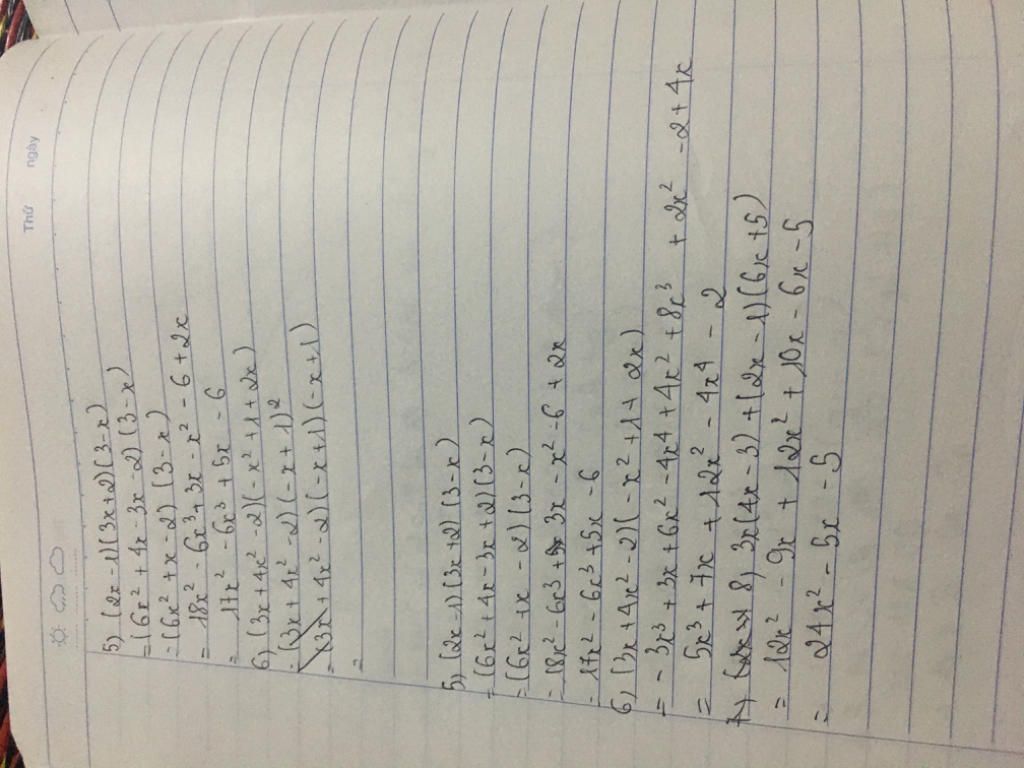 Thứ ngày
5) (2x-1)(3x+2)(3-x)
= (6x² + 4x - 3x - 2)(3-x)
= (6x² + x - 2)(3-x)
= 18x² - 6x³ + 3x - x² - 6 + 2x
= 17x² - 6x³ + 5x - 6
6) (3x + 4x² - 2)(-x² + 1 + 2x)
= (3x + 4x² - 2)(-x + 1)²
= (3x + 4x² - 2)(-x + 1)(-x + 1)
=
5) (2x-1)(3x+2)(3-x)
= (6x² + 4x - 3x + 2)(3-x)
= (6x² + x - 2)(3-x)
= 18x² - 6x³ + 3x - x² - 6 + 2x
= 17x² - 6x³ + 5x - 6
6) (3x + 4x² - 2)(-x² + 1 + 2x)
= -3x³ + 3x + 6x² - 4x⁴ + 4x² + 8x³ + 2x² - 2 + 4x
= 5x³ + 7x + 12x² - 4x⁴ - 2
8) 3x(4x - 3) + (2x - 1)(6x + 5)
= 12x² - 9x + 12x² + 10x - 6x - 5
= 24x² - 5x - 5